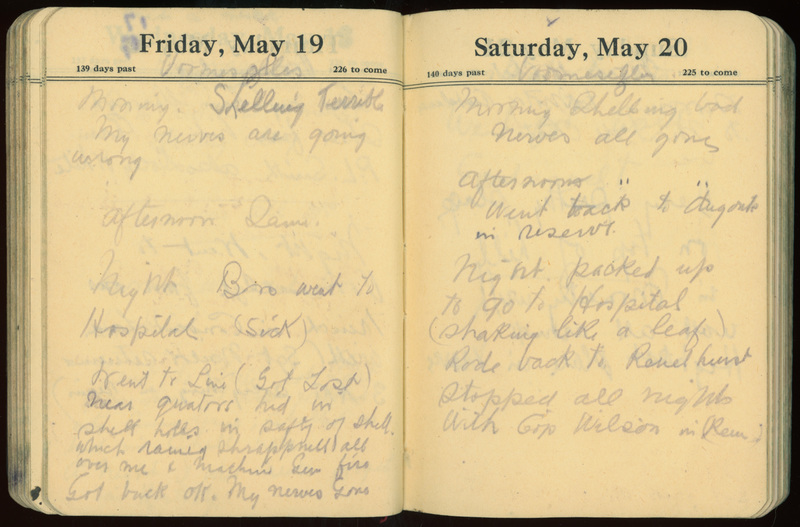 Friday, May 19
139 days past 226 to come
Morning. Shelling Terrible
My nerves are going
wrong
Afternoon Same.
Night Bro went to
Hospital (Sick)
Went to Line (Got Lost)
near quators hid in
shell holes in safty of shell.
which rained shrappnell all
over me & machine Gun fire
Got back ok. My nerves Gone
Saturday, May 20
140 days past 225 to come
Morning Shelling bad
Nerves all gone
Afternoon " "
Went back to
in reserve.
Night. packed up
to go to Hospital
(shaking like a leaf)
Rode back to
stopped all night
With Cop Wilson in